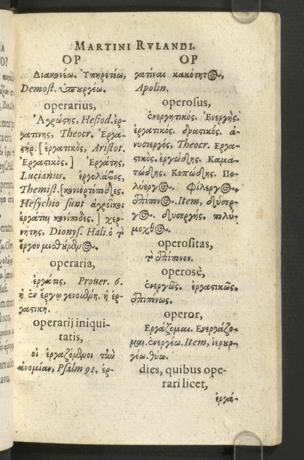 MARTINI RVLANDI.
OP
Διακονέω. Ὑπηρετέω,
Demost. ὑπουργέω.
operarius,
Ἀγρώτης, Hesiod. ἐρ-
γατίνης, Theocr. Ἐργα-
τὴρ. [ἐργατικὸς, Aristot.
Ἐργαστικὸς.] Ἐργάτης,
Lucianus. ἐργολάβος,
Themist. [κονιορτίποδες.
Hesychio sunt ἀγροῖκοι
ἐργάται κονίποδες.] χερ-
νήτης, Dionys. Hali. ὁ τὸ
ἔργον μισθούμενος.
operaria,
ἐργάτις, Prouer. 6.
ἡ ἐν ἔργῳ γενομένη. ἡ ἐρ-
γαστικὴ.
operarij iniqui-
tatis,
οἱ ἐργαζόμενοι τὴν
ἀνομίαν, Psalm 92. ἐρ-
OP
γατίναι κακότητος,
Apolin.
operosus,
ἐνεργητικὸς. Ἐνεργὴς.
ἐργατικὸς. δραστικὸς.
Theocr. Ἐργα-
στικὸς. ἐργώδης. Καμα-
τώδης. Κοπώδης. Πο-
λύεργος. Φίλεργος.
ἐπίπονος. Item, δύσερ-
γος. δυσεργὴς. πολύ-
μοχθος.
operositas,
τὸ ἐπίπονον.
operosè,
ἐνεργῶς. ἐργαστικῶς.
ἐπιπόνως.
operor,
Ἐργάζομαι. Ἐνεργάζο-
μαι. ἐνεργέω. Item, ἱερουρ-
γέω. θύω.
dies, quibus ope-
rari licet,
ἐργά-